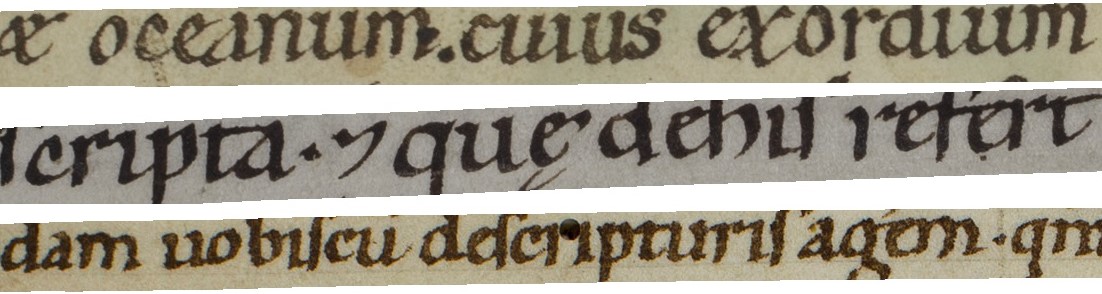 æ oceanum. cuius exordium
scripta · ⁊ quę dehiſ refert
dam uobiſcū deſcripturiſ agem · qm